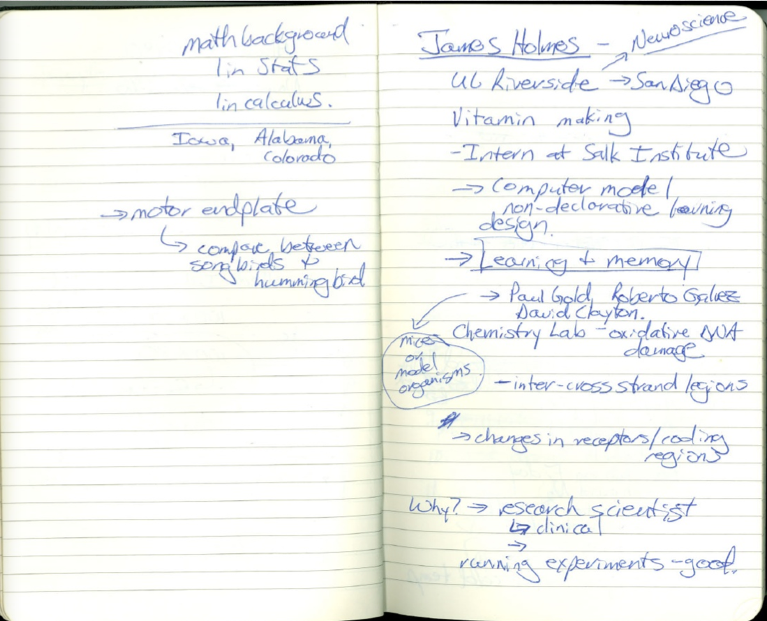 math background
1 in Stats
1 in calculus.
Iowa, Alabama,
Colorado
→ motor endplate
↳ compare between
songbirds +
hummingbird
James Holmes - Neuroscience
UC Riverside → San Diego
Vitamin making
- Intern at Salk Institute
→ Computer model
non-declarative learning
design.
→ Learning + memory
→ Paul Gold, Roberto Galvez
David Clayton.
mice
or
model
organisms
Chemistry Lab - oxidative DNA
damage
- inter-cross strand legions
→ changes in receptors/coding
regions
Why? → research scientist
↳ clinical
→
running experiments - good.